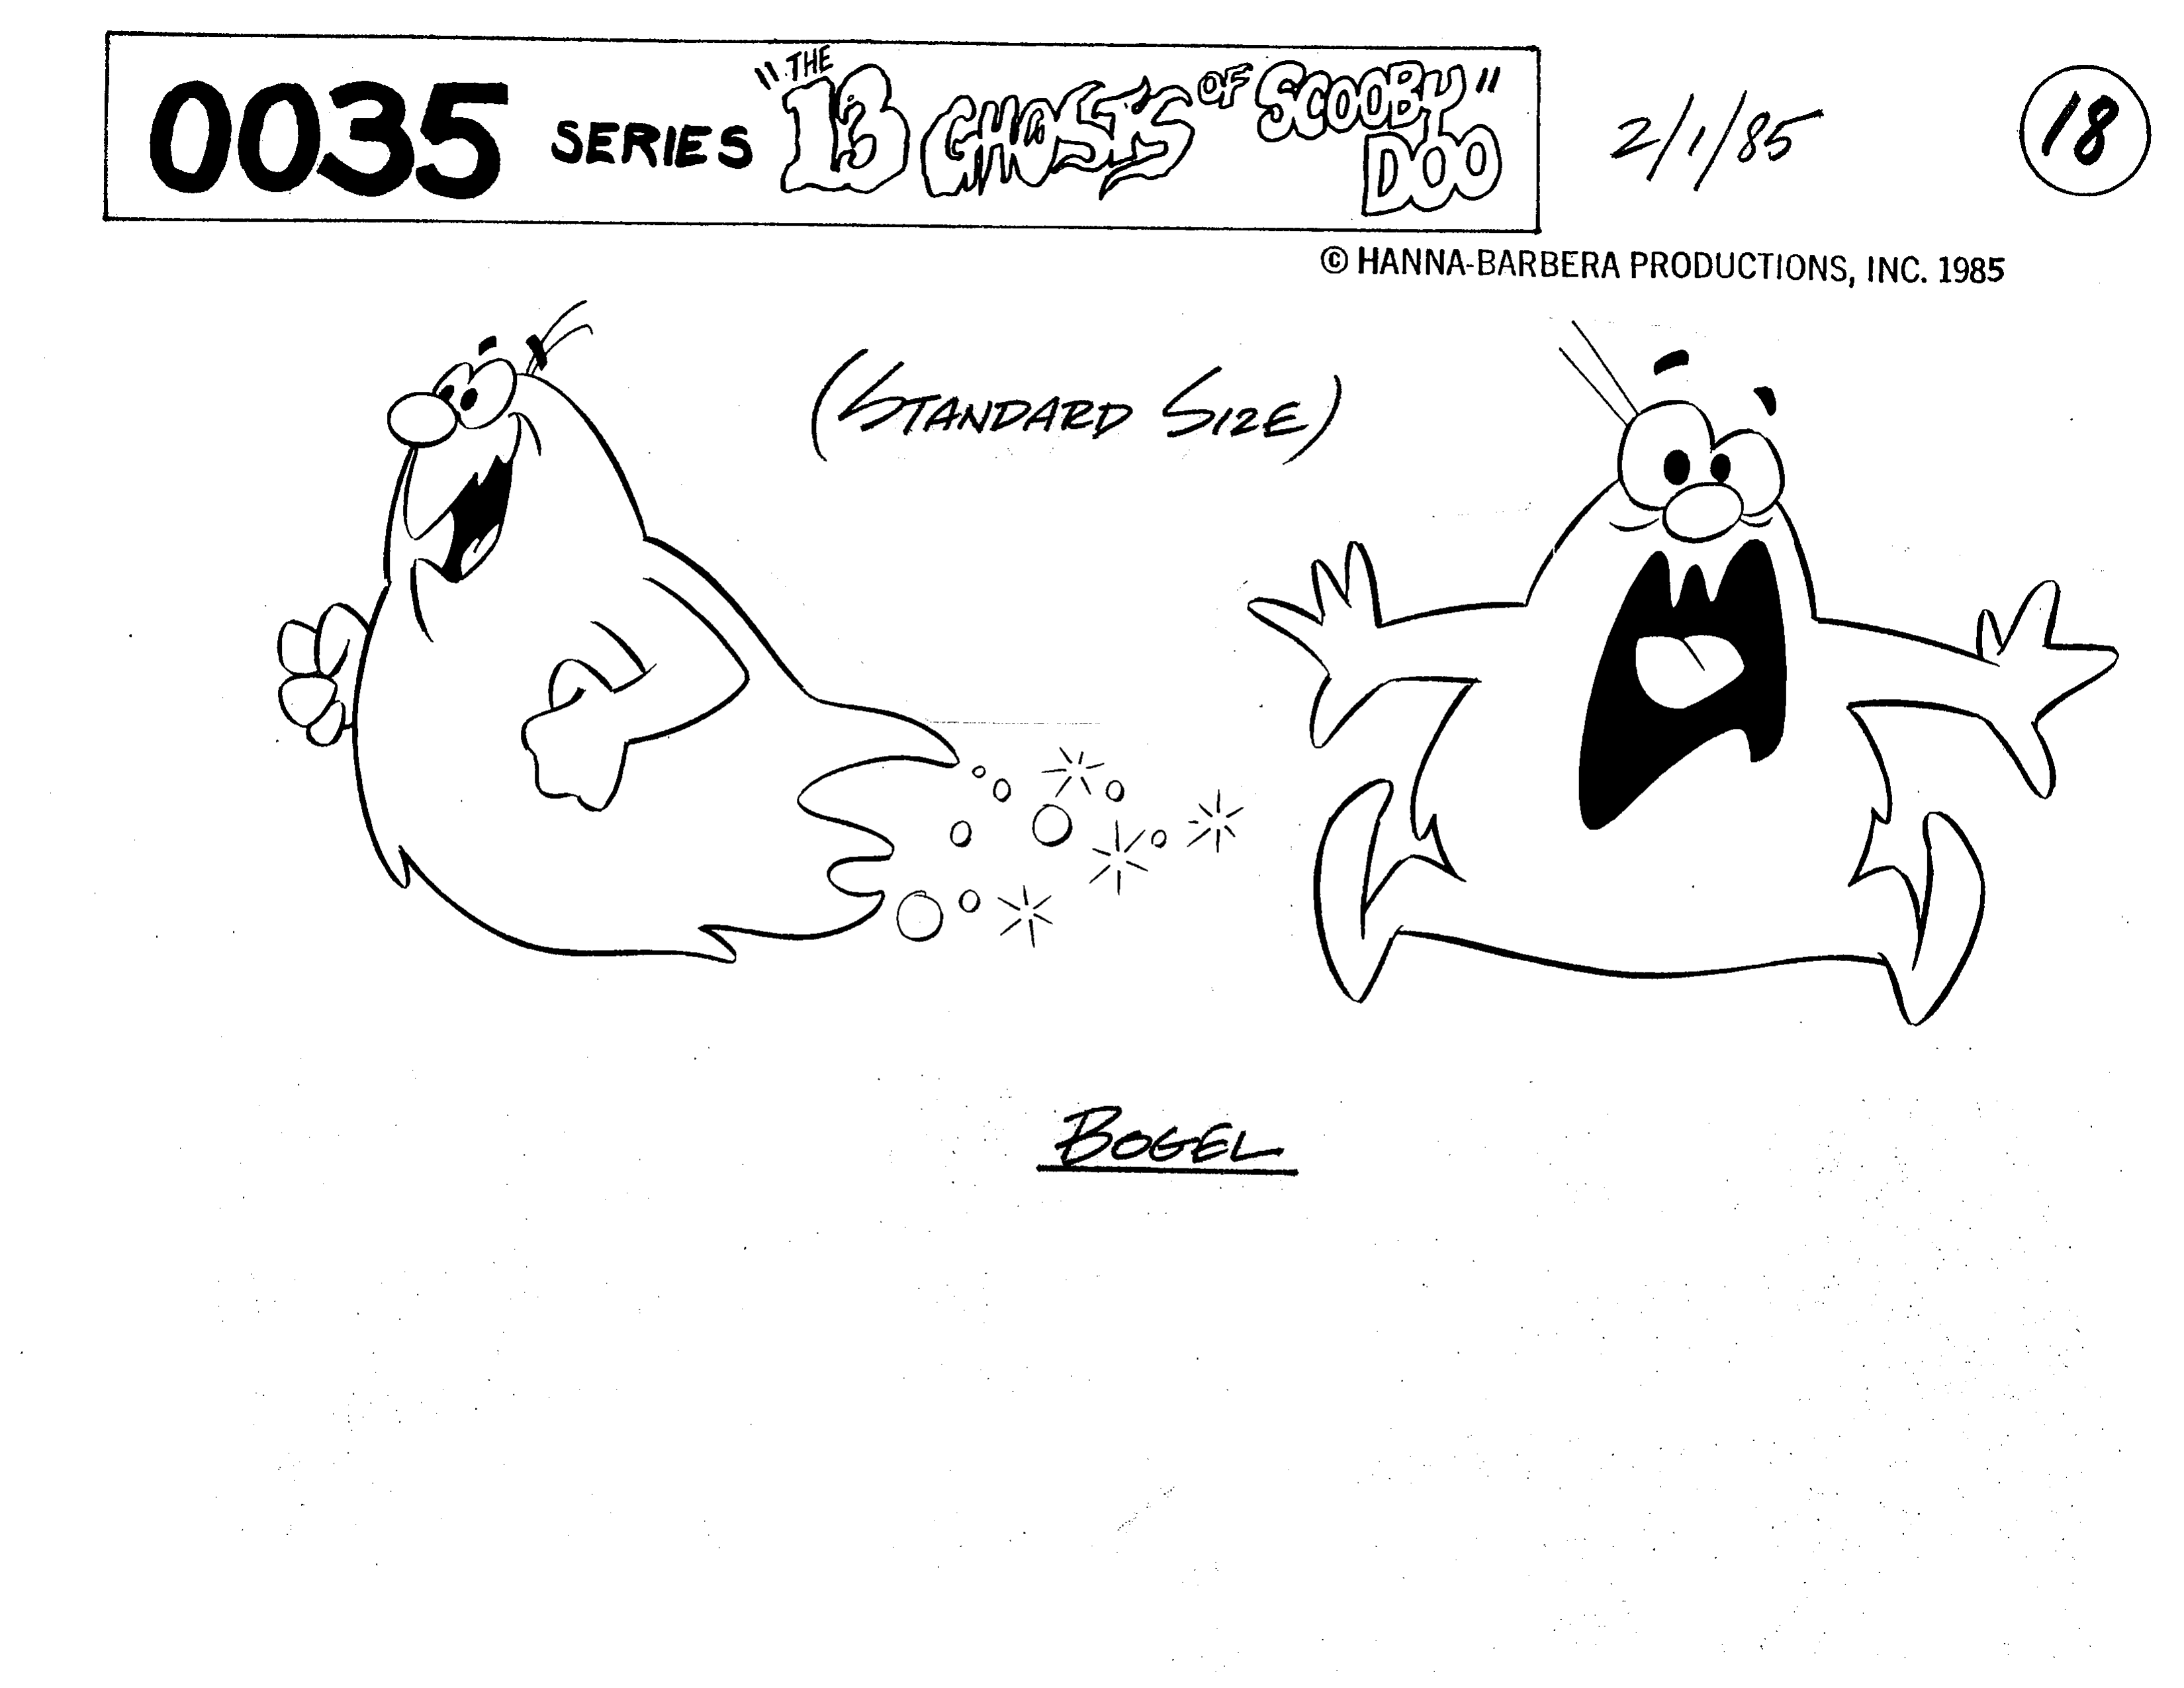 0035 SERIES "THE 13 GHOSTS OF SCOOBY DOO" 2/1/85 18
© HANNA-BARBERA PRODUCTIONS, INC. 1985
(STANDARD SIZE)
BOGEL